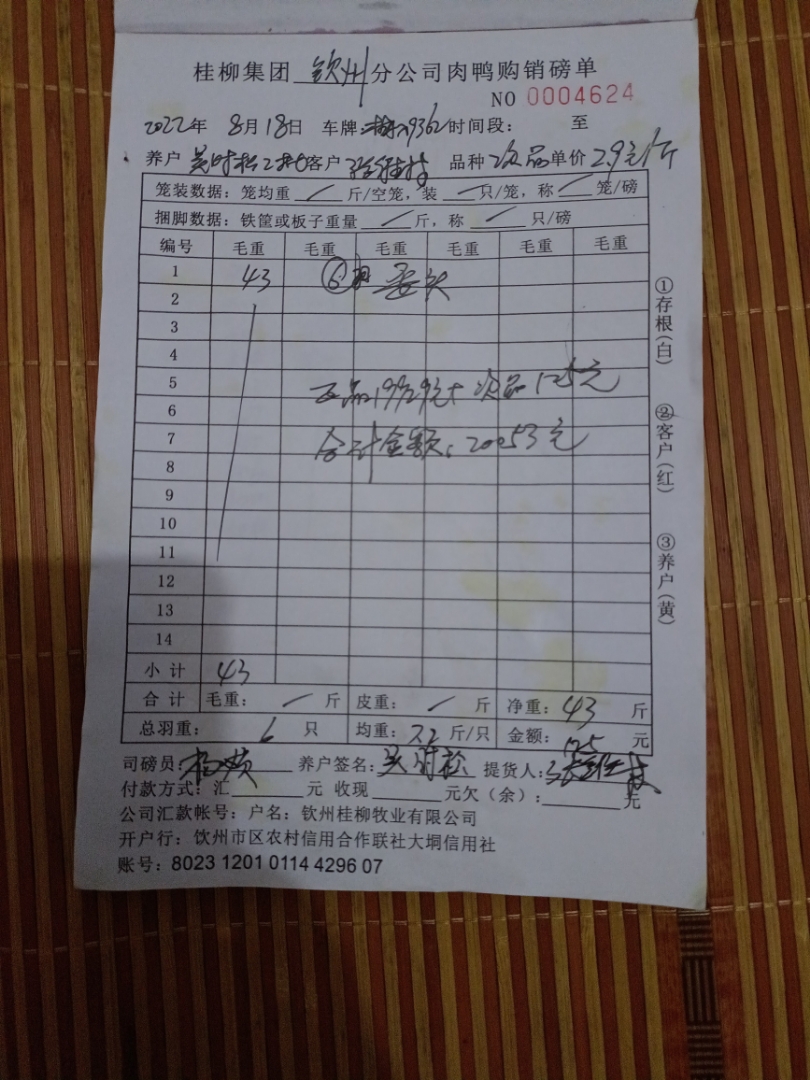 桂柳集团 钦州 分公司肉鸭购销磅单
NO 0004624
2022年 8月18日 车牌: 9362 时间段: 至
养户 吴时松 客户 品种 次品 单价 2.9元/斤
笼装数据:笼均重 / 斤/空笼,装 / 只/笼,称 / 笼/磅
捆脚数据:铁筐或板子重量 / 斤,称 / 只/磅
编号 毛重 毛重 毛重 毛重 毛重 毛重
1 43 ⑥
2
3
4
5 正品19929元+次品125元
6
7 合计金额:20053元
8
9
10
11
12
13
14
小计 43
合计 毛重: / 斤 皮重: / 斤 净重: 43 斤
总羽重: 6 只 均重: 7.2 斤/只 金额: 125 元
司磅员: 养户签名: 吴时松 提货人:
付款方式:汇 元 收现 元欠(余): 元
公司汇款帐号:户名:钦州桂柳牧业有限公司
开户行:钦州市区农村信用合作联社大垌信用社
账号:8023 1201 0114 4296 07
①存根(白)
②客户(红)
③养户(黄)